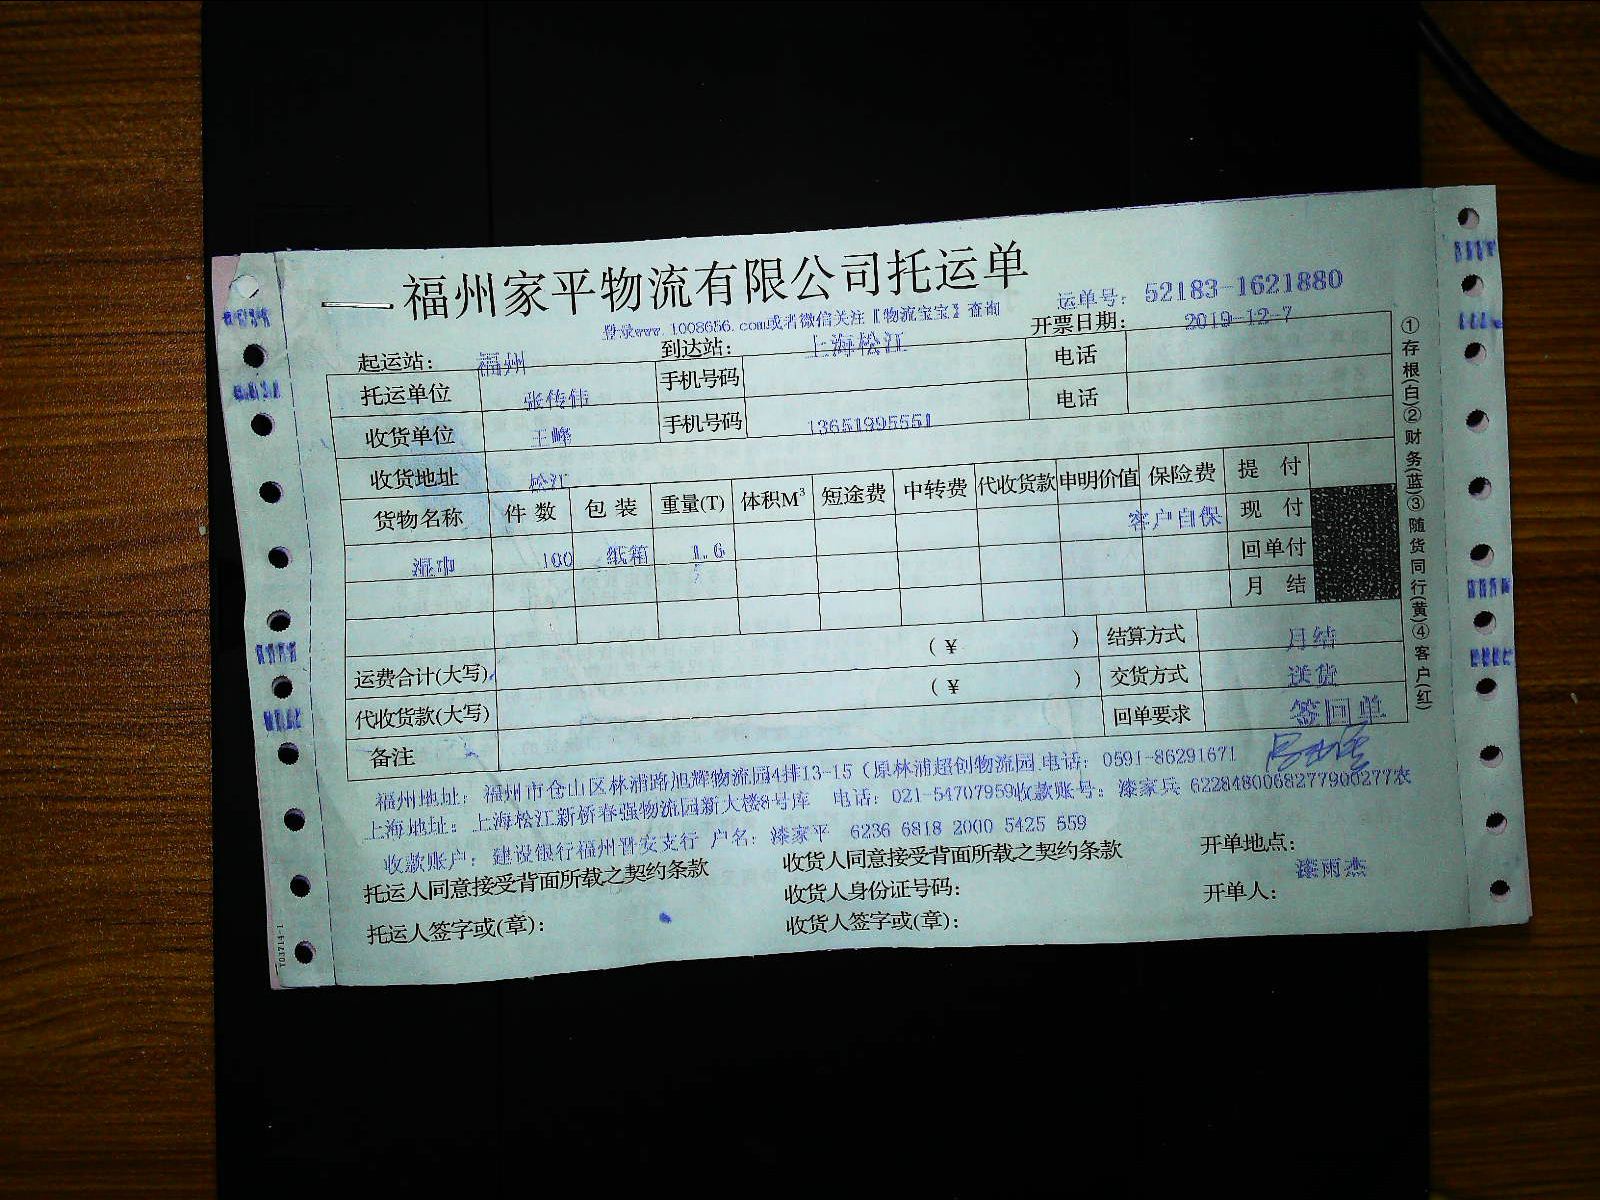 福州家平物流有限公司托运单
登录www.1008656.com或者微信关注『物流宝宝』查询
运单号: 52183-1621880
开票日期: 2019-12-7
起运站: 福州 到达站: 上海松江
托运单位 张传伟 手机号码 电话
收货单位 王峰 手机号码 13651995551 电话
收货地址 松江
货物名称 件 数 包 装 重量(T) 体积M³ 短途费 中转费 代收货款 申明价值 保险费 提 付
客户自保 现 付
湿巾 100 纸箱 1.6 回单付
月 结
运费合计(大写) (¥ ) 结算方式 月结
代收货款(大写) (¥ ) 交货方式 送货
备注 回单要求 签回单
福州地址: 福州市仓山区林浦路旭辉物流园4排13-15 (原林浦超创物流园 电话: 0591-86291671
上海地址: 上海松江新桥春强物流园新大楼8号库 电话: 021-54707959收款账号: 漆家兵 6228480068277900277农
收款账户: 建设银行福州晋安支行 户名: 漆家平 6236 6818 2000 5425 559
托运人同意接受背面所载之契约条款 收货人同意接受背面所载之契约条款 开单地点:
收货人身份证号码: 开单人: 漆雨杰
托运人签字或(章): 收货人签字或(章):
①存根(白)②财务(蓝)③随货同行(黄)④客户(红)
T03714-1